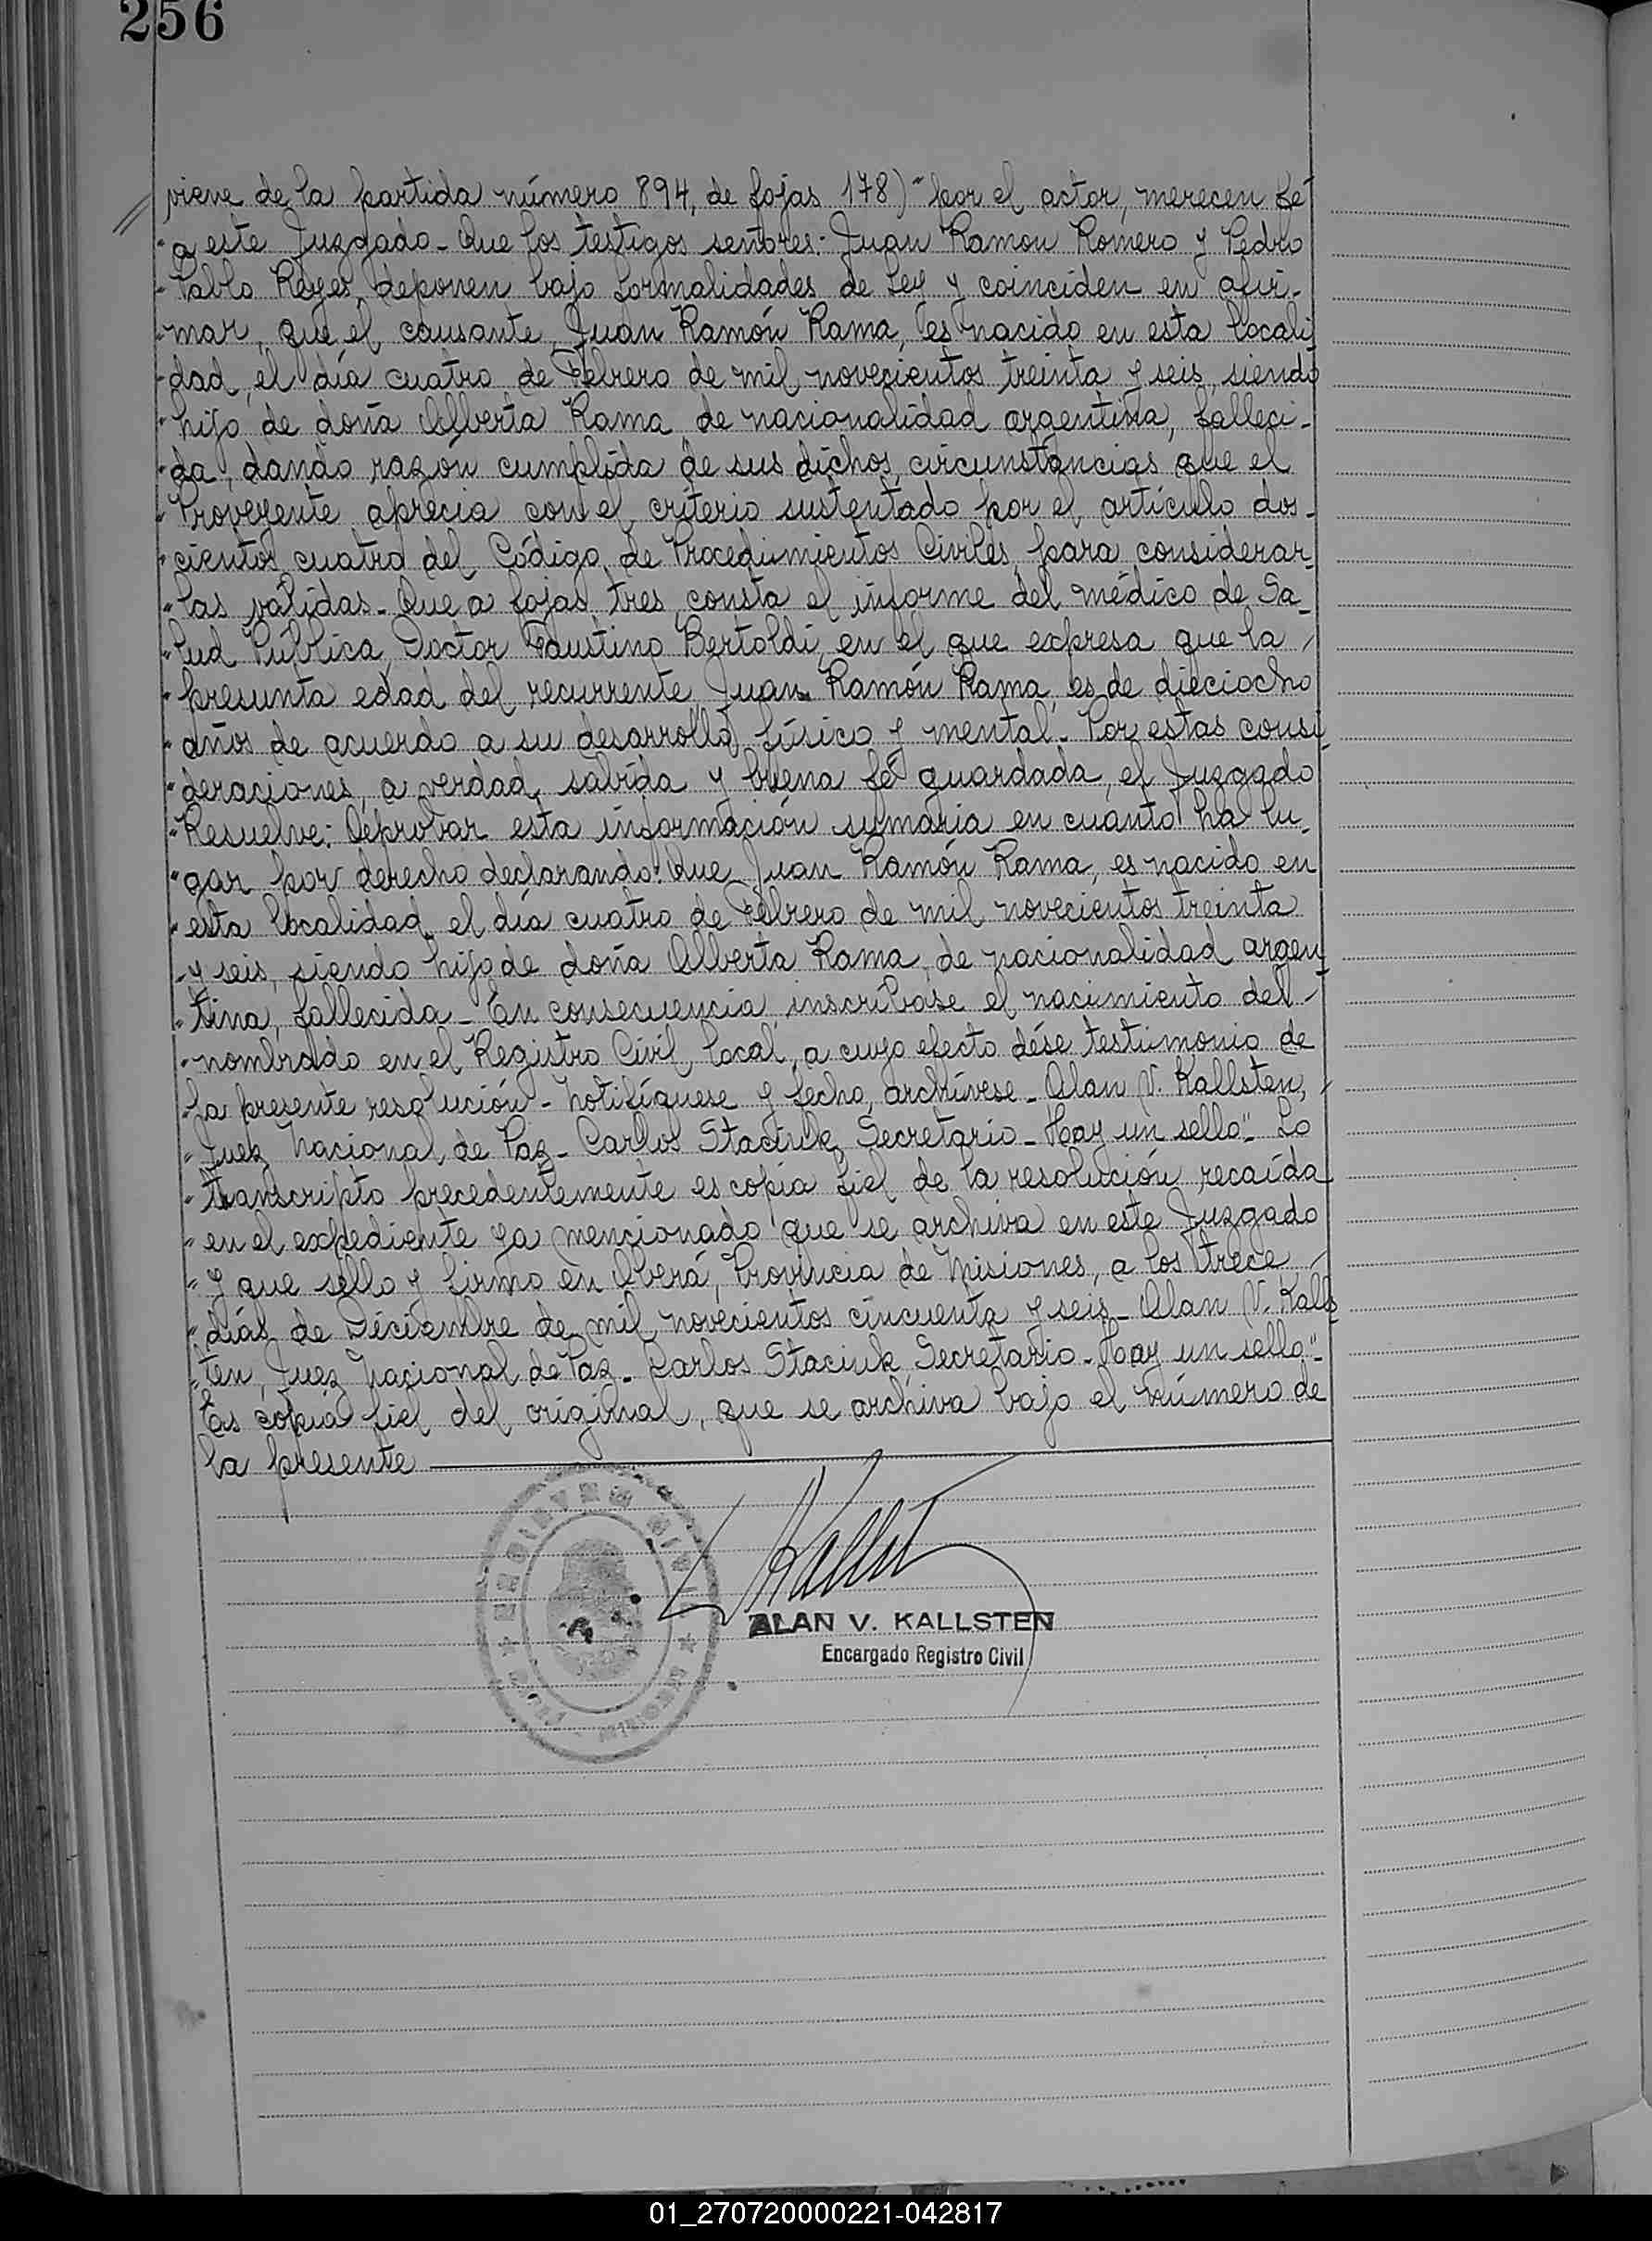 256
viene de la partida número 894, de fojas 178)" por el actor, merecen fé
"a este Juzgado - Que los testigos señores: Juan Ramon Romero y Pedro
"Pablo Reyes, deponen bajo formalidades de Ley y coinciden en afir-
"mar, que el causante, Juan Ramón Rama, es nacido en esta locali
"dad, el día cuatro de Febrero de mil novecientos treinta y seis, siendo
"hijo de doña Alberta Rama de nacionalidad argentina, falleci-
"da, dando razón cumplida de sus dichos, circunstancias que el
"Proveyente aprecia con el criterio sustentado por el artículo dos-
"cientos cuatro del Código de Procedimientos Civiles, para considerar-
"las válidas - Que a fojas tres, consta el informe del médico de Sa-
"lud Pública, Doctor Faustino Bertoldi, en el que expresa que la
"presunta edad del recurrente, Juan Ramón Rama, es de dieciocho
"años de acuerdo a su desarrollo físico y mental - Por estas consi-
"deraciones, a verdad sabida y buena fé guardada, el Juzgado
"Resuelve: Aprobar esta información sumaria en cuanto há lu-
"gar por derecho declarando: Que Juan Ramón Rama, es nacido en
"esta localidad, el día cuatro de Febrero de mil novecientos treinta
"y seis, siendo hijo de doña Alberta Rama, de nacionalidad argen
"tina, fallecida - En consecuencia, inscríbase el nacimiento del
"nombrado en el Registro Civil local, a cuyo efecto dése testimonio de
"la presente resolución - Notifíquese y fecho, archívese - Alan V. Kallsten,
"Juez Nacional de Paz - Carlos Staciuk, Secretario - Hay un sello" - Lo
"transcripto precedentemente es copia fiel de la resolución recaída
"en el expediente ya mencionado que se archiva en este Juzgado
"y que sello y firmo en Oberá, Provincia de Misiones, a los trece
"días de Diciembre de mil novecientos cincuenta y seis - Alan V. Kalls
"ten, Juez Nacional de Paz - Carlos Staciuk, Secretario - Hay un sello" -
Es copia fiel del original, que se archiva bajo el número de
la presente
ALAN V. KALLSTEN
Encargado Registro Civil
01_270720000221-042817